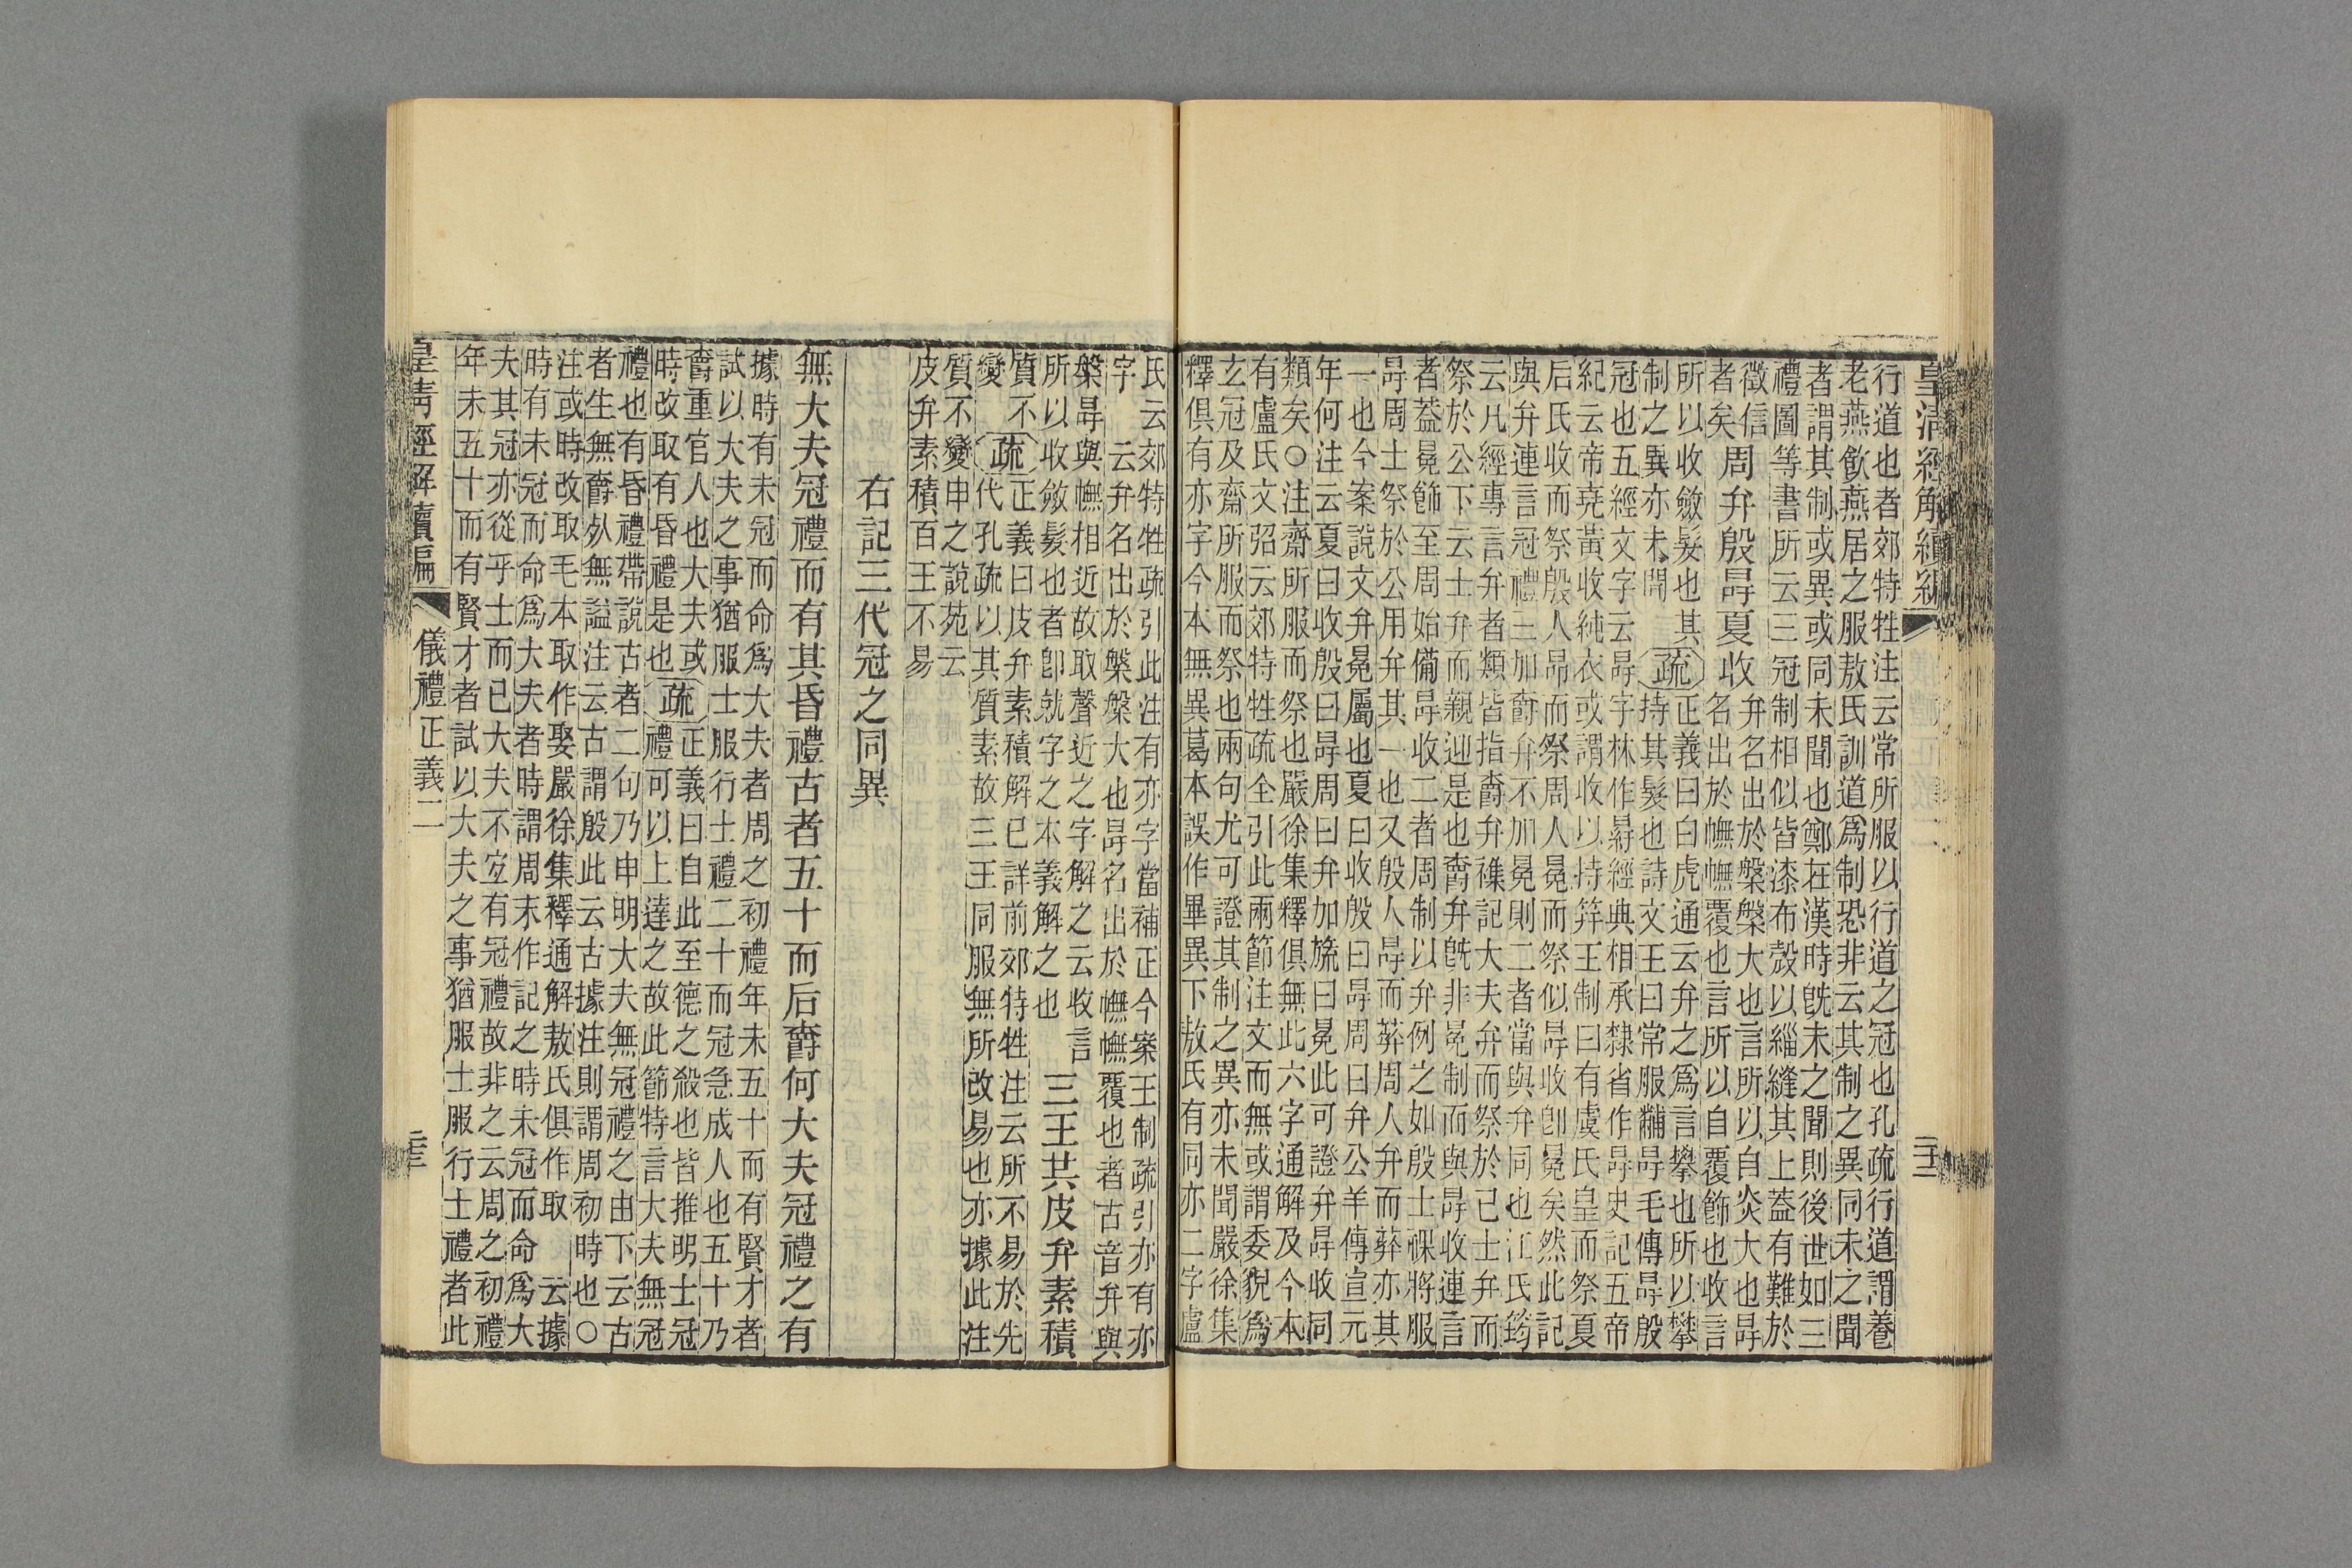 皇清經解續編
行道也者郊特牲注云常所服以行道之冠也孔疏行道謂養
老燕飮燕居之服敖氏訓道爲制恐非云其制之異同未之聞
者謂其制或異或同未聞也鄭在漢時旣未之聞則後世如三
禮圖等書所云三冠制相似皆漆布殼以緇縫其上蓋有難於
徵信者矣
周弁殷冔夏收
弁名出於槃槃大也言所以自炎大也冔
名出於幠幠覆也言所以自覆飾也收言
所以收斂髮也其
制之異亦未聞
疏
正義曰白虎通云弁之爲言攀也所以攀
持其髮也詩文王曰常服黼冔毛傳冔殷
冠也五經文字云冔字林作㝿經典相承隸省作冔史記五帝
紀云帝堯黃收純衣或謂收以持笄王制曰有虞氏皇而祭夏
后氏收而祭殷人冔而祭周人冕而祭似冔收卽冕矣然此記
與弁連言冠禮三加爵弁不加冕則二者當與弁同也江氏筠
云凡經專言弁者類皆指爵弁襍記大夫弁而祭於已士弁而
祭於公下云士弁而親迎是也爵弁旣非冕制而與冔收連言
者蓋冕飾至周始備冔收二者周制以弁例之如殷士祼將服
冔周士祭於公用弁其一也又殷人冔而葬周人弁而葬亦其
一也今案說文弁冕屬也夏曰收殷曰冔周曰弁公羊傳宣元
年何注云夏曰收殷曰冔周曰弁加旒曰冕此可證弁冔收同
類矣○注齋所服而祭也嚴徐集釋俱無此六字通解及今本
有盧氏文弨云郊特牲疏全引此兩節注文而無或謂委貌爲
玄冠及齋所服而祭也兩句尤可證其制之異亦未聞嚴徐集
釋俱有亦字今本無異葛本誤作畢異下敖氏有同亦二字盧
氏云郊特牲疏引此注有亦字當補正今案王制疏引亦有亦
字
云弁名出於槃槃大也冔名出於幠幠覆也者古音弁與
槃冔與幠相近故取聲近之字解之云收言
所以收斂髮也者卽就字之本義解之也
三王共皮弁素積
質不
變
疏
正義曰皮弁素積解已詳前郊特牲注云所不易於先
代孔疏以其質素故三王同服無所改易也亦據此注
質不變申之說苑云
皮弁素積百王不易
右記三代冠之同異
無大夫冠禮而有其昏禮古者五十而后爵何大夫冠禮之有
據時有未冠而命爲大夫者周之初禮年未五十而有賢才者
試以大夫之事猶服士服行士禮二十而冠急成人也五十乃
爵重官人也大夫或
時改取有昏禮是也
疏
正義曰自此至德之殺也皆推明士冠
禮可以上達之故此節特言大夫無冠
禮也有昏禮帶說古者二句乃申明大夫無冠禮之由下云古
者生無爵死無謚注云古謂殷此云古據注則謂周初時也○
注或時改取毛本取作娶嚴徐集釋通解敖氏俱作取
云據
時有未冠而命爲大夫者時謂周末作記之時未冠而命爲大
夫其冠亦從乎士而已大夫不宜有冠禮故非之云周之初禮
年未五十而有賢才者試以大夫之事猶服士服行士禮者此
皇清經解續編
儀禮正義二